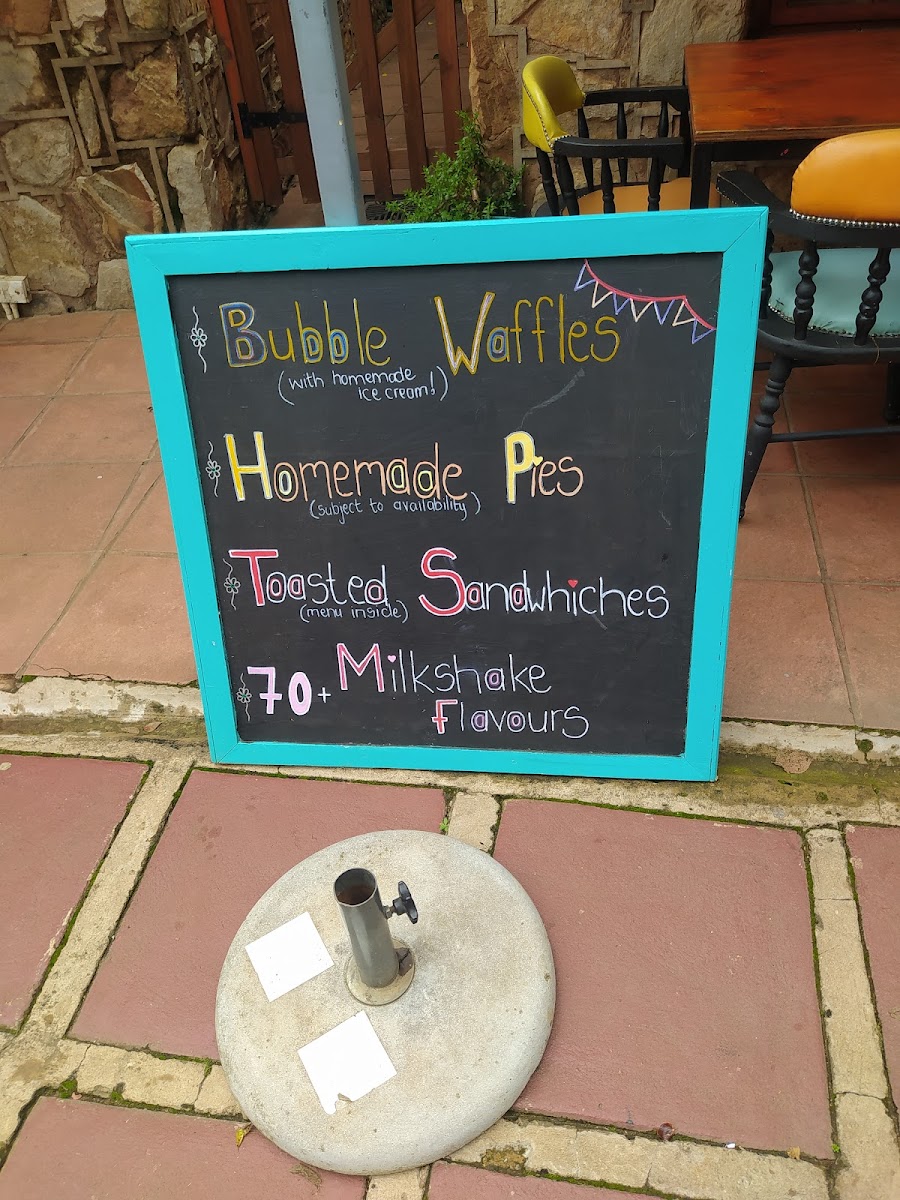 Bubble Waffles
(with homemade
ice cream!)
Homemade Pies
(subject to availability)
Toasted Sandwhiches
(menu inside)
70+ Milkshake
Flavours